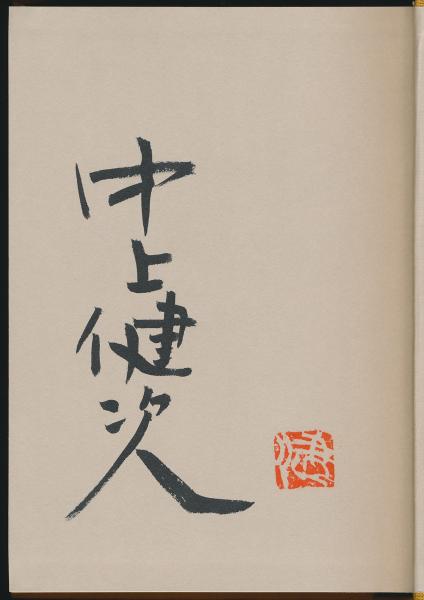 中上健次
健